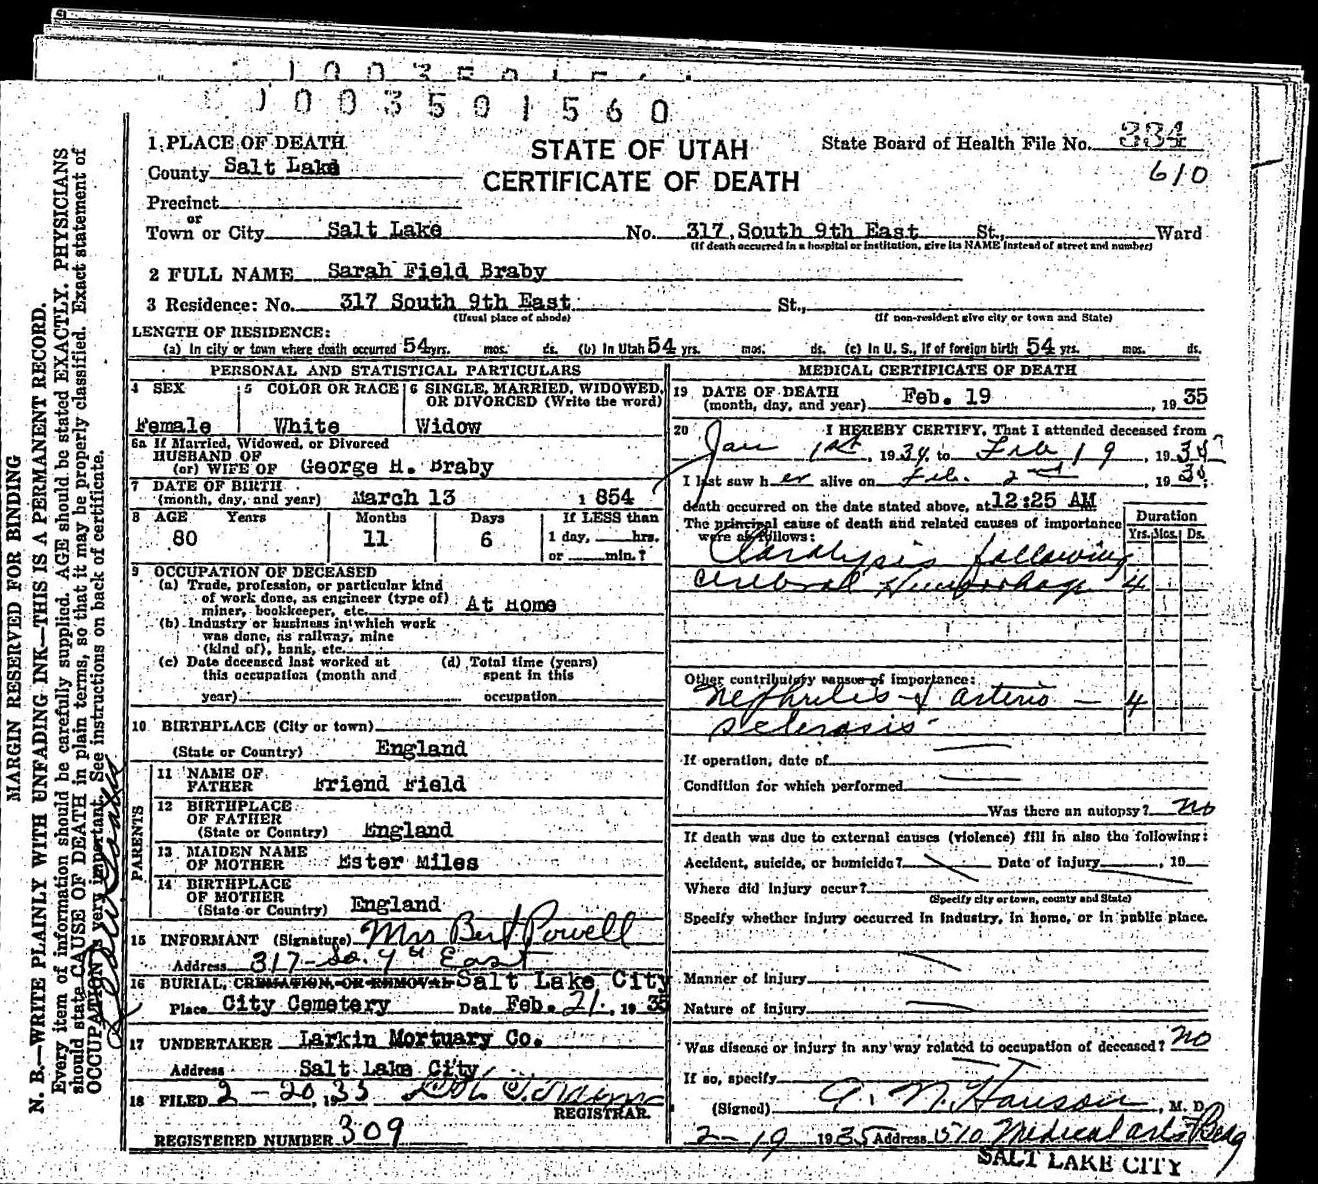 1003501560
1. PLACE OF DEATH
STATE OF UTAH
CERTIFICATE OF DEATH
State Board of Health File No. 334
610
County Salt Lake
Precinct
or
Town or City Salt Lake No. 317 South 9th East St., Ward
(If death occurred in a hospital or institution, give its NAME instead of street and number)
2 FULL NAME Sarah Field Braby
3 Residence: No. 317 South 9th East St.,
(Usual place of abode) (If non-resident give city or town and State)
LENGTH OF RESIDENCE:
(a) In city or town where death occurred 54 yrs. mos. ds. (b) In Utah 54 yrs. mos. ds. (c) In U. S., if of foreign birth 54 yrs. mos. ds.
PERSONAL AND STATISTICAL PARTICULARS
4 SEX
Female
5 COLOR OR RACE
White
6 SINGLE, MARRIED, WIDOWED, OR DIVORCED (Write the word)
Widow
6a If Married, Widowed, or Divorced
HUSBAND OF
(or) WIFE OF George H. Braby
7 DATE OF BIRTH
(month, day, and year) March 13 1854
8 AGE Years Months Days If LESS than
80 11 6 1 day, hrs.
or min.?
9 OCCUPATION OF DECEASED
(a) Trade, profession, or particular kind
of work done, as engineer (type of)
miner, bookkeeper, etc. At Home
(b) Industry or business in which work
was done, as railway, mine
(kind of), bank, etc.
(c) Date deceased last worked at
this occupation (month and
year)
(d) Total time (years)
spent in this
occupation
10 BIRTHPLACE (City or town)
(State or Country) England
PARENTS
11 NAME OF
FATHER Friend Field
12 BIRTHPLACE
OF FATHER
(State or Country) England
13 MAIDEN NAME
OF MOTHER Ester Miles
14 BIRTHPLACE
OF MOTHER
(State or Country) England
15 INFORMANT (Signature) Mrs Bert Powell
Address 317-So. 9th East
16 BURIAL, CREMATION, OR REMOVAL Salt Lake City
Place City Cemetery Date Feb. 21, 1935
17 UNDERTAKER Larkin Mortuary Co.
Address Salt Lake City
18 FILED 2-20, 1935
REGISTRAR.
REGISTERED NUMBER 309
MEDICAL CERTIFICATE OF DEATH
19 DATE OF DEATH
(month, day, and year) Feb. 19, 1935
20 I HEREBY CERTIFY, That I attended deceased from
Jan 1st, 1934, to Feb 19, 1935
I last saw her alive on Feb. 2nd, 1935;
death occurred on the date stated above, at 12:25 AM
The principal cause of death and related causes of importance
were as follows:
Duration
Yrs. Mos. Ds.
Paralysis following
cerebral Hemorrhage 4
Other contributory causes of importance:
Nephritis & arterio — 4
sclerosis
If operation, date of
Condition for which performed
Was there an autopsy? No
If death was due to external causes (violence) fill in also the following:
Accident, suicide, or homicide? Date of injury, 19
Where did injury occur?
(Specify city or town, county and State)
Specify whether injury occurred in industry, in home, or in public place.
Manner of injury
Nature of injury
Was disease or injury in any way related to occupation of deceased? No
If so, specify
(Signed) A. N. Hanson, M. D.
2-19 1935 Address 510 Medical arts Bldg
SALT LAKE CITY
MARGIN RESERVED FOR BINDING
N. B.—WRITE PLAINLY WITH UNFADING INK—THIS IS A PERMANENT RECORD.
Every item of information should be carefully supplied. AGE should be stated EXACTLY. PHYSICIANS
should state CAUSE OF DEATH in plain terms, so that it may be properly classified. Exact statement of
OCCUPATION is very important. See instructions on back of certificate.